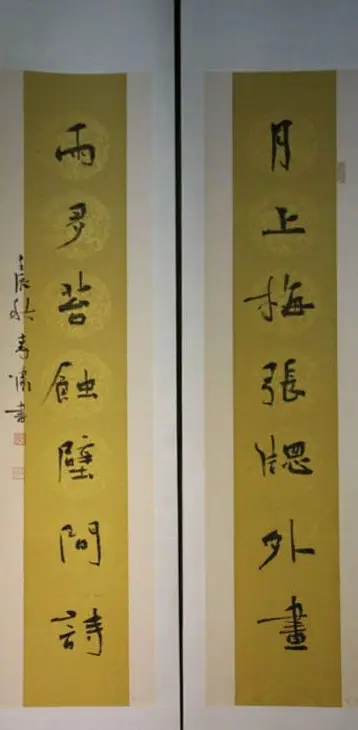 月上梅張牕外畫
雨多苔蝕壁間詩
壬辰秋書